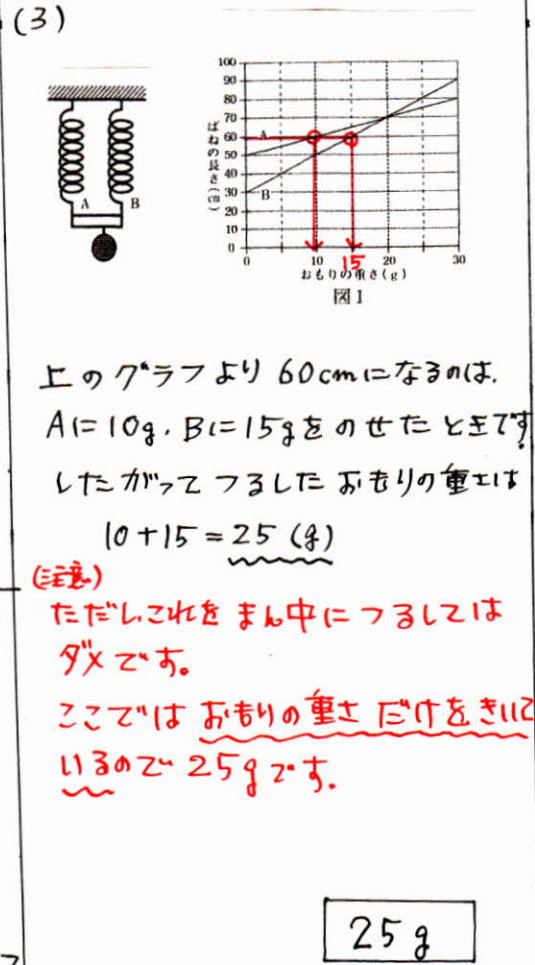 (3)
A
B
ばねの長さ(cm)
100
90
80
70
60
50
40
30
20
10
0
A
B
0
10
15
20
30
おもりの重さ(g)
図1
上のグラフより 60cmになるのは、
Aに10g、Bに15gをのせたときです
したがって つるした おもりの重さは
10+15=25 (g)
(注意)
ただし、これを まん中に つるしては
ダメです。
ここでは おもりの重さ だけをきいて
いるので 25gです。
25g